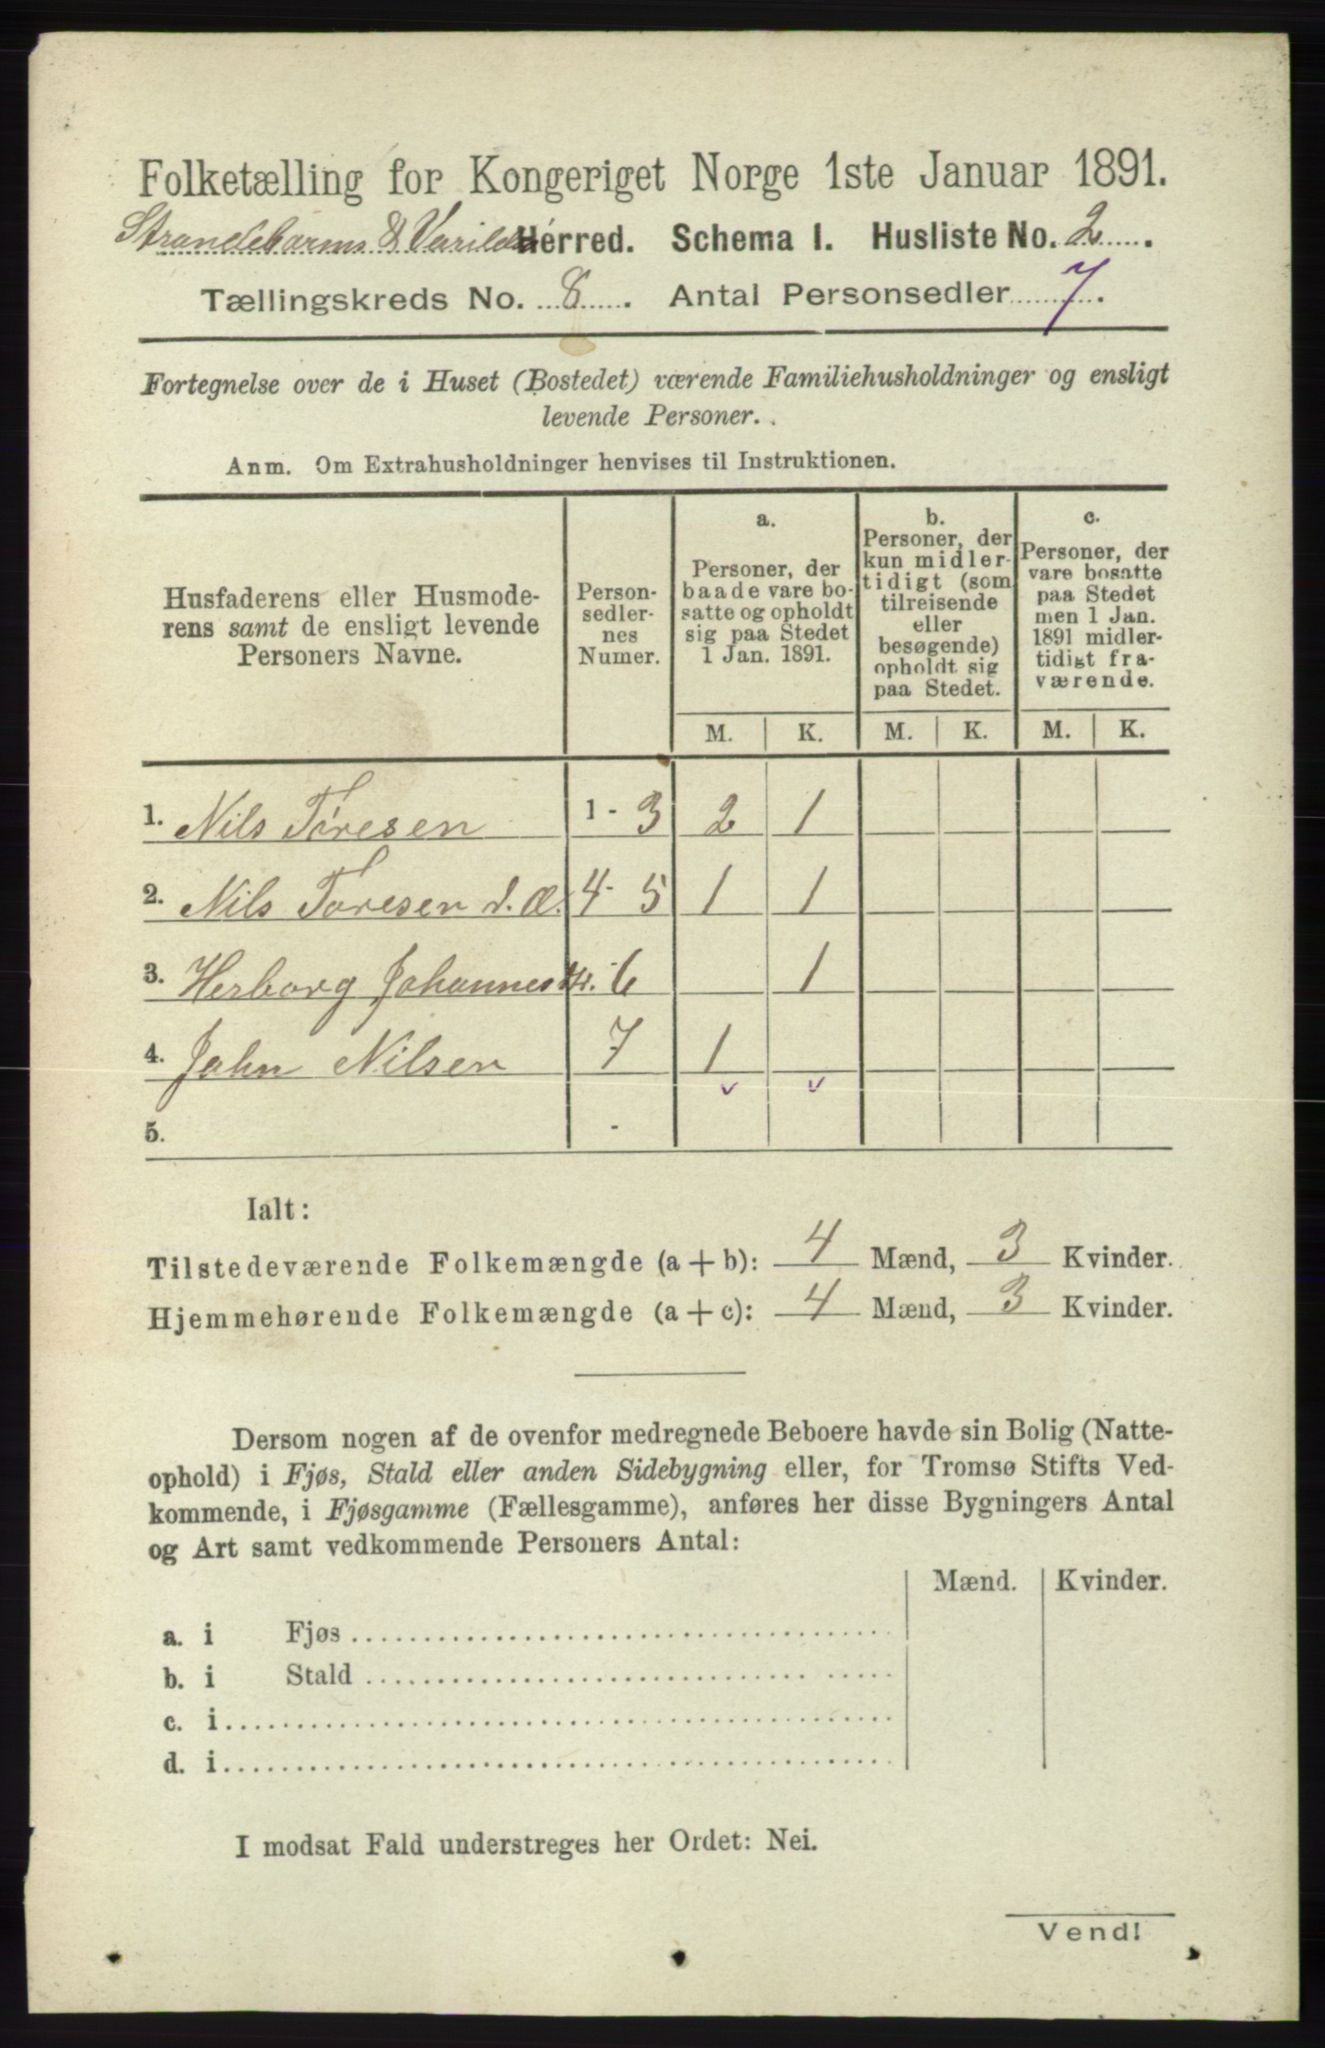 Folketælling for Kongeriget Norge 1ste Januar 1891.
Strandebarms & Varilds Herred. Schema I. Husliste No. 2.
Tællingskreds No. 8. Antal Personsedler 7.
Fortegnelse over de i Huset (Bostedet) værende Familiehusholdninger og ensligt
levende Personer.
Anm. Om Extrahusholdninger henvises til Instruktionen.
Husfaderens eller Husmode-
rens samt de ensligt levende
Personers Navne.
Person-
sedler-
nes
Numer.
a.
Personer, der
baade vare bo-
satte og opholdt
sig paa Stedet
1 Jan. 1891.
b.
Personer, der
kun midler-
tidigt (som
tilreisende
eller
besøgende)
opholdt sig
paa Stedet.
c.
Personer, der
vare bosatte
paa Stedet
men 1 Jan.
1891 midler-
tidigt fra-
værende.
M. K. M. K. M. K.
1. Nils Toresen 1 - 3 2 1
2. Nils Toresen d. æ. 4 - 5 1 1
3. Herborg Johannesdtr. 6 1
4. John Nilsen 7 1
5. -
Ialt:
Tilstedeværende Folkemængde (a + b): 4 Mænd, 3 Kvinder.
Hjemmehørende Folkemængde (a + c): 4 Mænd, 3 Kvinder.
Dersom nogen af de ovenfor medregnede Beboere havde sin Bolig (Natte-
ophold) i Fjøs, Stald eller anden Sidebygning eller, for Tromsø Stifts Ved-
kommende, i Fjøsgamme (Fællesgamme), anføres her disse Bygningers Antal
og Art samt vedkommende Personers Antal:
Mænd. Kvinder.
a. i Fjøs
b. i Stald
c. i
d. i
I modsat Fald understreges her Ordet: Nei.
Vend!